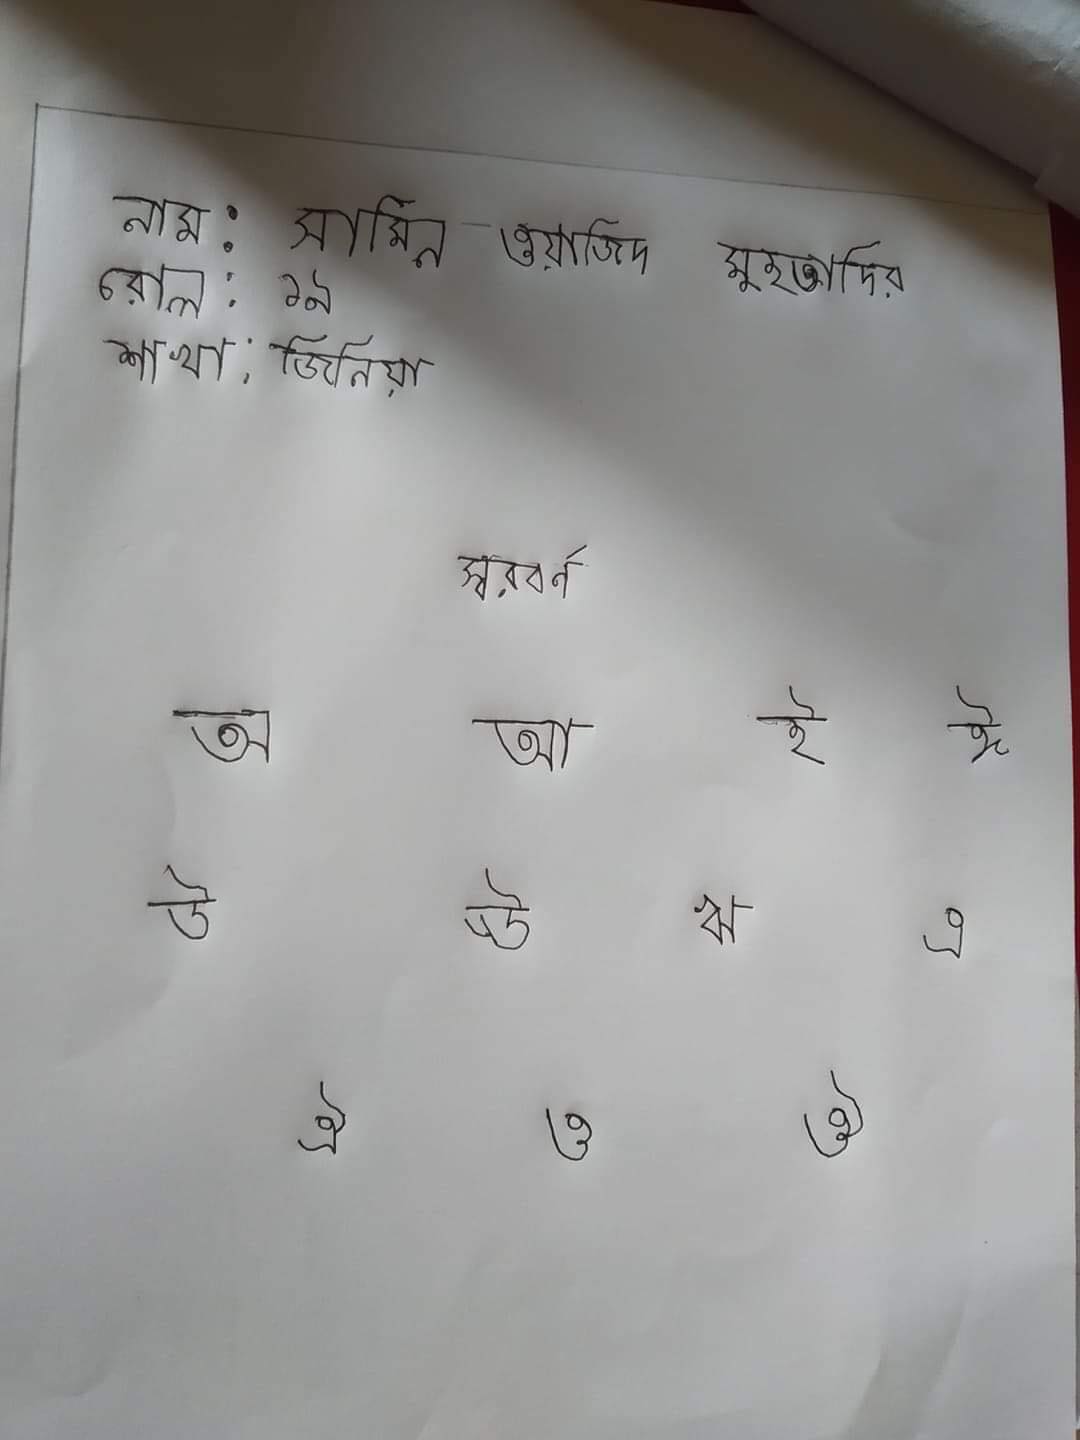 নাম: সামিন ওয়াজিদ মুহতাদির
রোল: ১৯
শাখা: জিনিয়া
স্বরবর্ন
অ আ ই ঈ
উ ঊ ঋ এ
ঐ ও ঔ